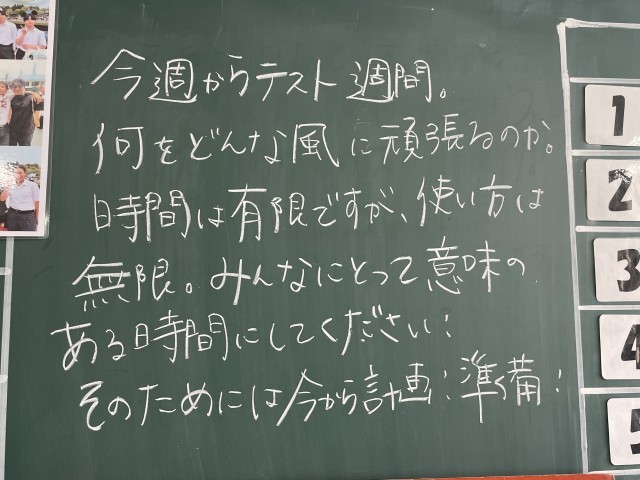 今週からテスト週間。
何をどんな風に頑張るのか。
時間は有限ですが、使い方は
無限。みんなにとって意味の
ある時間にしてください!
そのためには今から計画!準備!
1
2
3
4
5